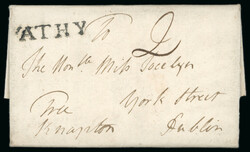 ATHY
To 2
The Honble Miss Jocelyn
Free York Street
Knapton Dublin